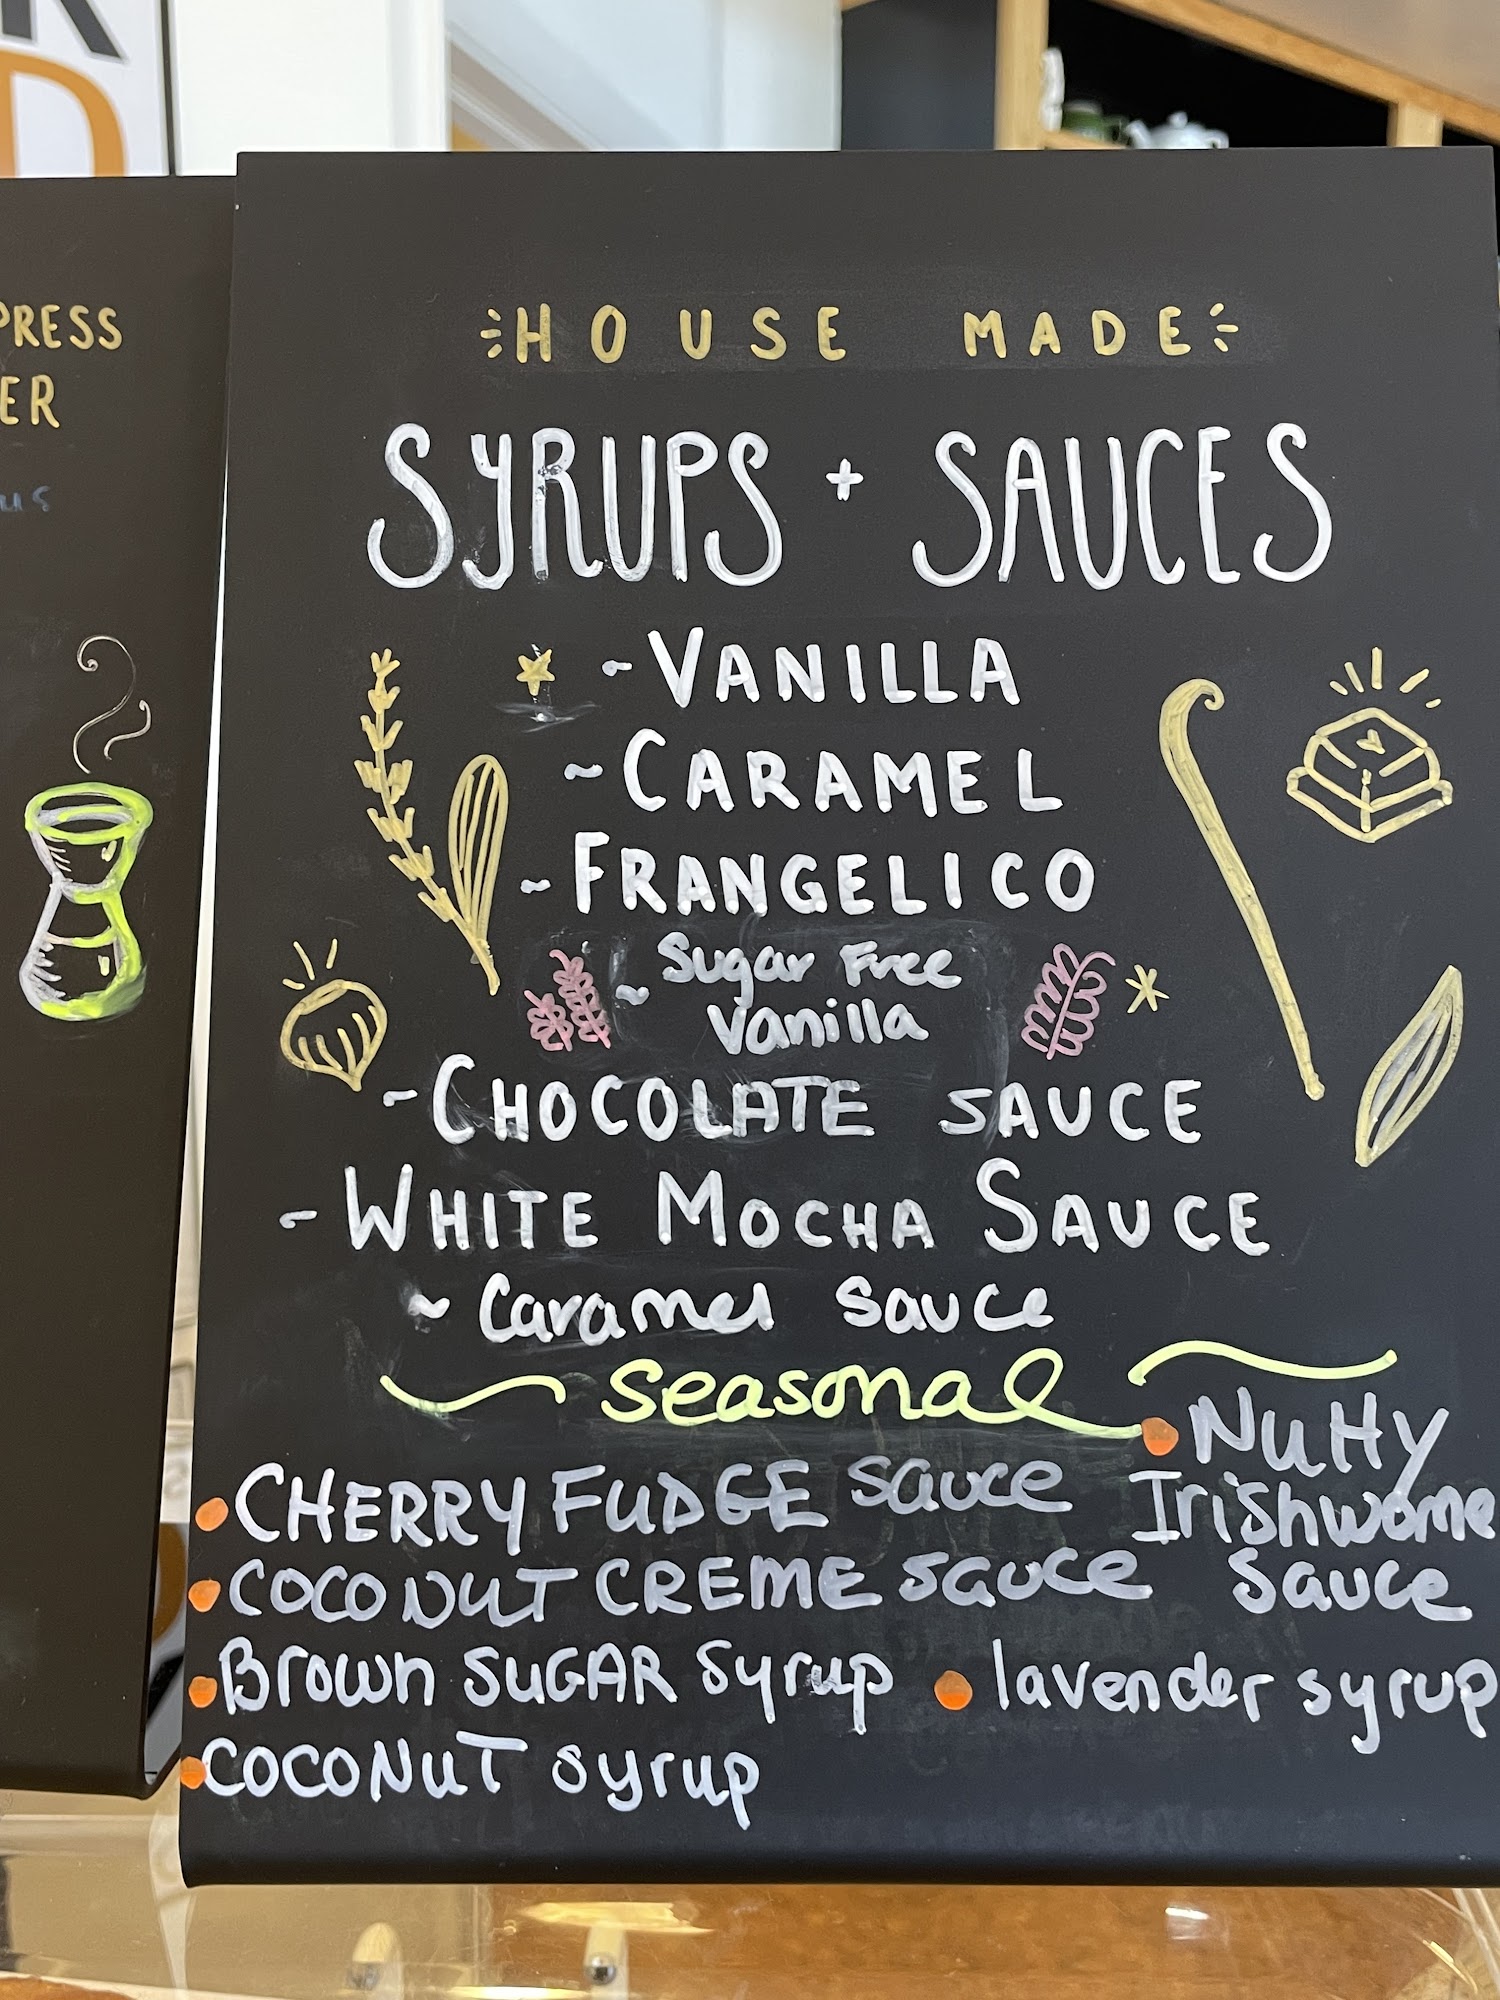 R
D
PRESS
ER
HOUSE MADE
SYRUPS + SAUCES
~ VANILLA
~ CARAMEL
~ FRANGELICO
~ Sugar Free
Vanilla
~ CHOCOLATE SAUCE
~ WHITE MOCHA SAUCE
~ Caramel Sauce
seasonal
• CHERRY FUDGE sauce
• COCONUT CREME sauce
• Brown SUGAR syrup
• COCONUT syrup
• Nutty
Irishwoman
Sauce
• lavender syrup